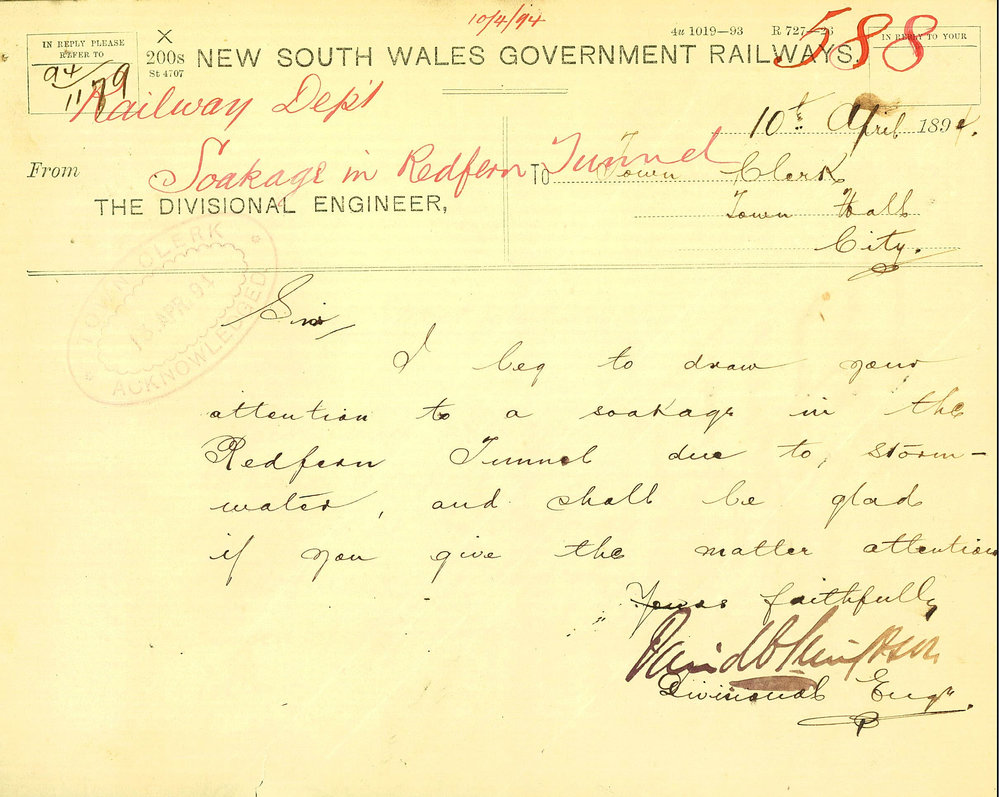 10/4/94
4u 1019—93 R 727—26
588
IN REPLY PLEASE
REFER TO
94/1179
X
200s
St 4707
NEW SOUTH WALES GOVERNMENT RAILWAYS.
IN REPLY TO YOUR
Railway Dept
10th April 1894.
From
Soakage in Redfern Tunnel
THE DIVISIONAL ENGINEER,
TO Town Clerk
Town Hall
City.
TOWN CLERK
13 APR. 94
ACKNOWLEDGED
Sir,
I beg to draw your
attention to a soakage in the
Redfern Tunnel due to, storm-
water, and shall be glad
if you give the matter attention
Yours faithfully
Divisional Engr.